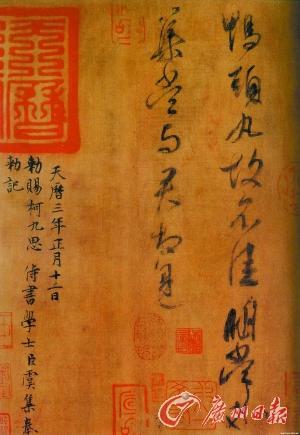 鸭頭丸故不佳明當必
集當與君相見
天曆三年正月十二日
勑賜柯九思侍書學士臣虞集奉
勑記
天曆
廣州日報